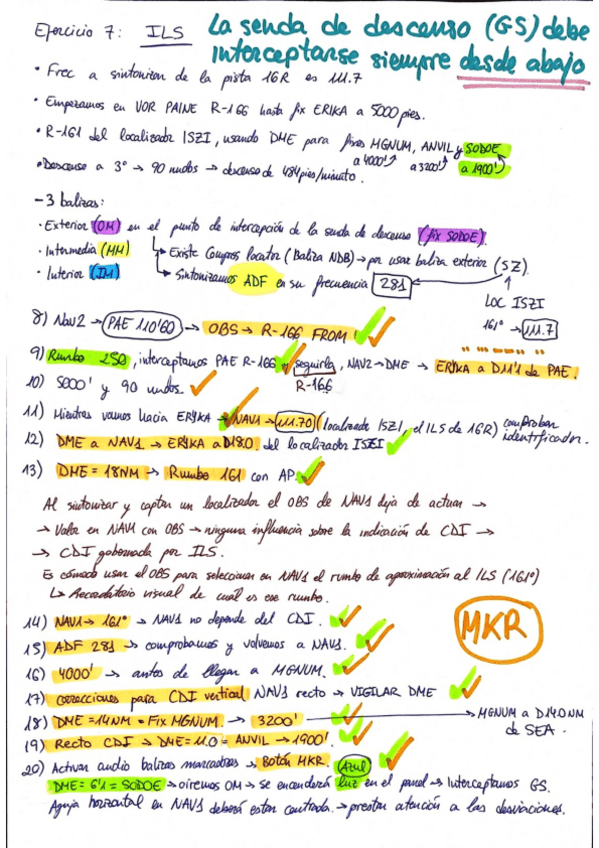 Ejercicio 7: ILS La senda de descenso (GS) debe
interceptarse siempre desde abajo
• Frec a sintonizar de la pista 16R es 111.7
• Empezamos en VOR PAINE R-166 hasta fix ERIKA a 5000 pies.
• R-161 del localizador ISZI, usando DME para fixes MGNUM, ANVIL y SODOE
a 4000' a 3200' a 1900'
• Descenso a 3° → 90 nudos → descenso de 484 pies/minuto.
- 3 balizas:
• Exterior (OM) en el punto de intercepción de la senda de descenso (fix SODOE).
• Intermedia (MM) → Existe Compass locator (Baliza NDB) → por usar baliza exterior (SZ)
• Interior (IM) → Sintonizamos ADF en su frecuencia 281
LOC ISZI
161° → 111.7
8) Nav2 → PAE 110'60 → OBS → R-166 FROM
9) Rumbo 250, interceptamos PAE R-166 y seguirla, NAV2 → DME → ERIKA a D11'1 de PAE.
R-166
10) 5000' y 90 nudos.
11) Mientras vamos hacia ERIKA → NAV1 → 111.70 (localizador ISZI, el ILS de 16R) comprobar
identificador.
12) DME a NAV1 → ERIKA a D18.0. del localizador ISZI
13) DME = 18NM → Rumbo 161 con AP.
Al sintonizar y captar un localizador el OBS de NAV1 deja de actuar →
→ Valor en NAV1 con OBS → ninguna influencia sobre la indicación de CDI →
→ CDI gobernada por ILS.
Es cómodo usar el OBS para seleccionar en NAV1 el rumbo de aproximación al ILS (161°)
↳ Recordatorio visual de cuál es ese rumbo.
14) NAV1 → 161° → NAV1 no depende del CDI.
15) ADF 281 → comprobamos y volvemos a NAV1.
MKR
16) 4000' → antes de llegar a MGNUM.
17) correcciones para CDI vertical NAV1 recto → VIGILAR DME
18) DME = 14NM = Fix MGNUM. → 3200' → MGNUM a D14.0 NM
de SEA.
19) Recto CDI → DME = 11.0 = ANVIL → 1900'.
20) Activar audio balizas marcadoras → Botón MKR. Azul
DME = 6'1 = SODOE → oiremos OM → se encenderá luz en el panel → Interceptamos GS.
Aguja horizontal en NAV1 deberá estar centrada. → prestar atención a las desviaciones.